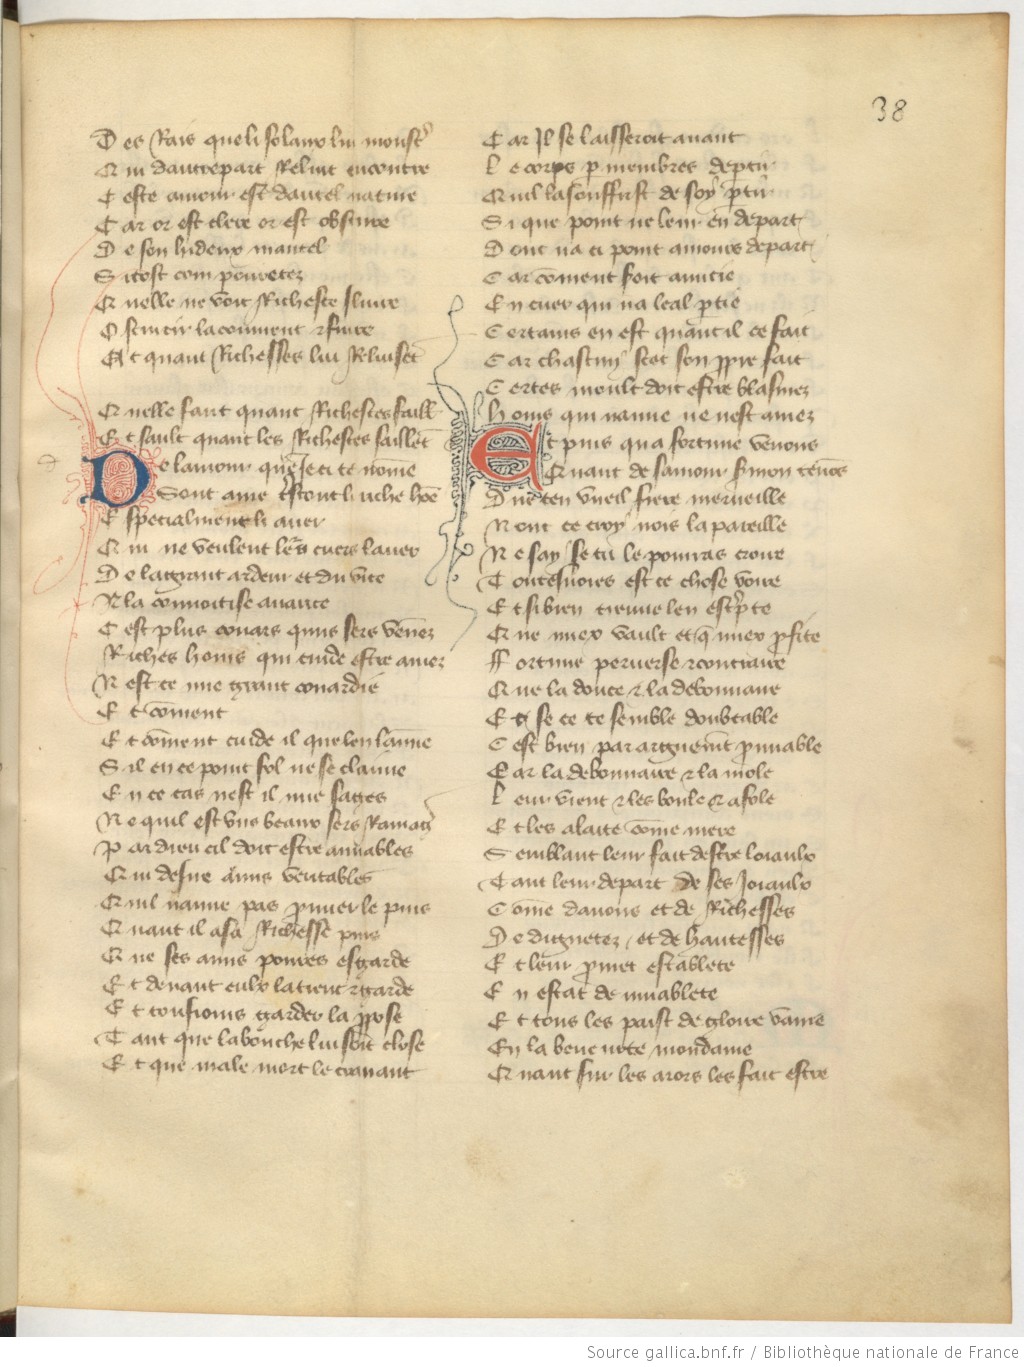 38
Des Rais que li solaux lui monst᷑
Qui dautrepart Reluit encontre
Ceste amour est dautel nature
Car or est clere or est obscure
De son hideux mantel
Sitost com pouretez
Quelle ne voit Richesce sluire
Oscurcir la couuient ⁊ fuire
Et quant Richesses lui Rluisēt
Quelle faut quant Richesces faill
Et sault quant les Richesces saillēt
De lamour que Je ci te nōme
Sont ame t᷑stout li riche hōe
Especialment li auer
Qui ne veulent leᷣs cuers lauer
De la grant ardeur et du vice
A la couuoitise auarice
Cest plus couars quns sers venez
Riches homs qui cuide estre amez
Nest ce mie grant couardie
Et cōment
Et cōment cuide il que len laime
Sil en ce point fol ne se claime
En ce cas nest il mie sages
Ne quil est vns beaux sers Ramag᷑
Par dieu cil doit estre amiables
Qui desire amis veritables
Quil naime pas prouuer le puis
Quant il a sa Richesse puis
Que ses amis poures esgarde
Et deuant eulx la tient ⁊ garde
Et tousiours garder la propose
Tant que la bouche lui soit close
Et que male mort le crauant
Car Il se laisseroit auant
Le corps p membres deptir
Quil la souffrist de soy ptir
Si que point ne leur en depart
Donc na ci point amours depart
Car cōment soit amitie
En cuer qui na leal ptie
Certains en est quant il ce fait
Car chascun scet son ppre fait
Certes moult doit estre blasmez
Homs qui naime ne nest amez
Et puis qua fortune venons
Quant de samour sermon tenōs
Dire ten vueil fiere merueille
Nonc ce croy nois la pareille
Ne say se tu le pourras croire
Toutesuoies est ce chose voire
Et si bien treuue len escpte
Que miex vault et q̄ miex pfite
Fortune peruerse ⁊ contraire
Que la douce ⁊ la debonnaire
Et se ce te semble doubtable
Cest bien par argueūt prouuable
Car la debonnaire ⁊ la mole
Leur vient ⁊ les boule ⁊ afole
Et les alaite cōme mere
Semblant leur fait destre loiaulx
Tant leur depart de ses Joiaulx
Cōme dauoirs et de Richesses
De dignetez et de hautesses
Et leur promet establete
En estat de muablete
Et tous les paist de gloire vaine
En la beneurte mondaine
Quant sur les arors les fait estre
Source gallica.bnf.fr / Bibliothèque nationale de France